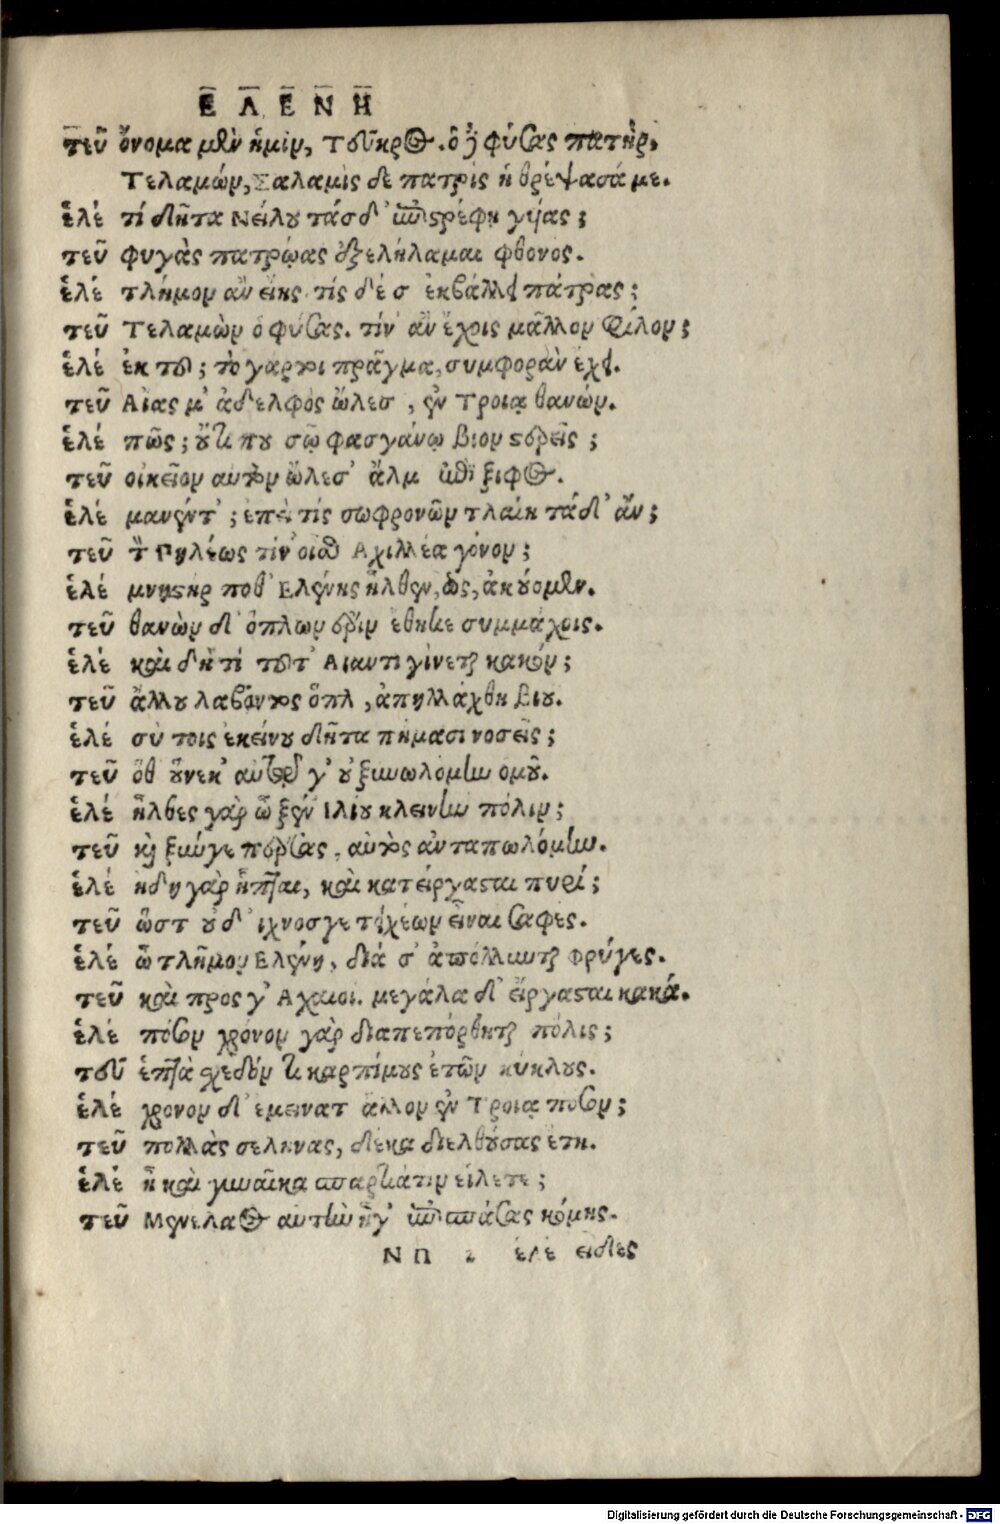 ΕΛΕΝΗ
τεῦ ὄνομα μὲν ἡμῖν, Τεῦκρος. ὁ δὲ φύσας πατὴρ,
Τελαμών, Σαλαμὶς δε πατρὶς ἡ θρέψασά με.
ἑλέ τί δῆτα Νείλου τάσδ' ἐπιστρέφη γύας;
τεῦ φυγὰς πατρῴας ἐξελήλαμαι φθονος.
ἑλέ τλήμον ἂν εἴης. τίς δέ σ' ἐκβάλλει πάτρας;
τεῦ Τελαμὼν ὁ φύσας. τίν' ἂν ἔχοις μᾶλλον φίλον;
ἑλέ ἐκ τοῦ; τὸ γάρ τοι πρᾶγμα, συμφορὰν ἔχει.
τεῦ Αἴας μ' ἀδελφὸς ὤλεσ', ἐν Τροίᾳ θανών.
ἑλέ πῶς; οὔτι που σῷ φασγάνῳ βίον στερείς;
τεῦ οἰκεῖον αυτὸν ὤλεσ' ἄλμ' ἐπὶ ξίφος.
ἑλέ μανέντ'; ἐπεὶ τίς σωφρονῶν τλαίη τάδ' ἄν;
τεῦ τὸν Πηλέως τίν' οἶσθ' Αχιλλέα γόνον;
ἑλέ μνηστὴρ ποθ' Ελένης ἦλθεν, ὡς, ἀκούομεν.
τεῦ θανὼν δ' ὅπλων ἔριν ἔθηκε συμμάχοις.
ἑλέ καὶ δὴ τί τοῦτ' Αιαντι γίνεται κακόν;
τεῦ ἄλλου λαβόντος ὅπλ', ἀπηλλάχθη βίου.
ἑλέ σὺ τοις ἐκείνου δῆτα πήμασι νοσεῖς;
τεῦ ὅθ' οὕνεκ' αυτῷ γ' οὐ ξυνωλόμην ομοῦ.
ἑλέ ἦλθες γὰρ ὦ ξέν' Ιλίου κλεινὴν πόλιν;
τεῦ καὶ ξύν γε πέρσας, αὐτὸς ἀνταπωλόμην.
ἑλέ ηδη γὰρ ἧπται, καὶ κατείργασται πυρί;
τεῦ ὥστ' οὐδ' ιχνοσγε τειχέων εἶναι σαφες.
ἑλέ ὦ τλῆμον Ελένη, διά σ' ἀπόλλυνται Φρύγες.
τεῦ καὶ προς γ' Αχαιοι. μεγάλα δ' εἴργασται κακά.
ἑλέ πόσον χρόνον γὰρ διαπεπόρθηται πόλις;
τοῦ ἑπτὰ σχεδόν τι καρπίμους ἐτῶν κύκλους.
ἑλέ χρονον δ' εμεινατ' ἄλλον ἐν Τροίᾳ ποσον;
τεῦ πολλὰς σεληνας, δέκα διελθούσας ἔτη.
ἑλέ ἦ καὶ γυναῖκα σπαρτιάτιν εἵλετε;
τεῦ Μενέλαος αυτὴν ἦγ' ἐπισπάσας κόμης.
ΝΠ 2 ἑλέ ειδες
Digitalisierung gefördert durch die Deutsche Forschungsgemeinschaft - DFG